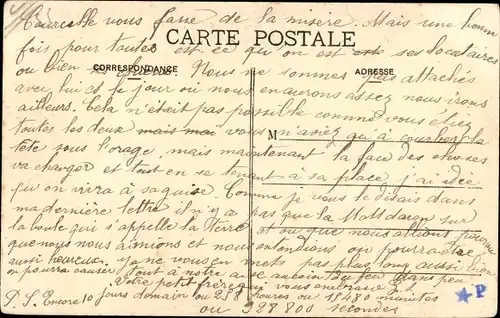 vous fasse de la misère. Mais une bonne
CARTE POSTALE
fois pour toutes est ce qu'on est ses locataires
CORRESPONDANCE
ADRESSE
ou bien Nous ne sommes pas attachés
avec lui et le jour où nous en aurons assez nous irons
ailleurs. Cela n'était pas possible comme vous étiez
toutes les deux mais mai vous n'aviez qu'à courber la
M
tête sous l'orage, mais maintenant la face des choses
va changer et tout en se tenant à sa place j'ai idée
qu'on vivra à sa guise. Comme je vous le disais dans
ma dernière lettre il n'y a pas que la sur
la boule qui s'appelle la Terre et où que nous allions pourvu
que nous nous aimions et nous entendions on pourra être
aussi heureux. Je ne vous en met pas plus long aussi bien
on pourra causer tout à notre aise au coin du feu dans peu
Votre petit frère qui vous embrasse
P. S. Encore 10 jours demain ou 258 heures ou 15480 minutes
ou 928 800 secondes
P